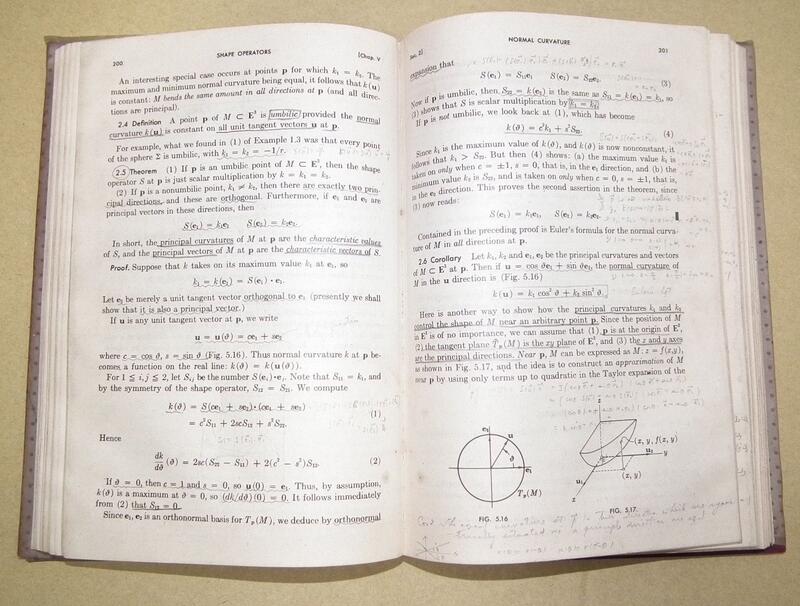 200
SHAPE OPERATORS
[Chap. V
An interesting special case occurs at points p for which k₁ = k₂. The
maximum and minimum normal curvature being equal, it follows that k(u)
is constant: M bends the same amount in all directions at p (and all direc-
tions are principal).
2.4 Definition A point p of M ⊂ E³ is umbilic provided the normal
curvature k(u) is constant on all unit tangent vectors u at p.
For example, what we found in (1) of Example 1.3 was that every point
of the sphere Σ is umbilic, with k₁ = k₂ = −1/r.
2.5 Theorem (1) If p is an umbilic point of M ⊂ E³, then the shape
operator S at p is just scalar multiplication by k = k₁ = k₂.
(2) If p is a nonumbilic point, k₁ ≠ k₂, then there are exactly two prin-
cipal directions, and these are orthogonal. Furthermore, if e₁ and e₂ are
principal vectors in these directions, then
S(e₁) = k₁e₁ S(e₂) = k₂e₂.
In short, the principal curvatures of M at p are the characteristic values
of S, and the principal vectors of M at p are the characteristic vectors of S.
Proof. Suppose that k takes on its maximum value k₁ at e₁, so
k₁ = k(e₁) = S(e₁) • e₁.
Let e₂ be merely a unit tangent vector orthogonal to e₁ (presently we shall
show that it is also a principal vector.)
If u is any unit tangent vector at p, we write
u = u(ϑ) = ce₁ + se₂
where c = cos ϑ, s = sin ϑ (Fig. 5.16). Thus normal curvature k at p be-
comes, a function on the real line: k(ϑ) = k(u(ϑ)).
For 1 ≦ i,j ≦ 2, let Sᵢⱼ be the number S(eᵢ)•eⱼ. Note that S₁₁ = k₁, and
by the symmetry of the shape operator, S₁₂ = S₂₁. We compute
k(ϑ) = S(ce₁ + se₂)•(ce₁ + se₂)
(1)
= c²S₁₁ + 2scS₁₂ + s²S₂₂.
Hence
dk/dϑ (ϑ) = 2sc(S₂₂ − S₁₁) + 2(c² − s²)S₁₂. (2)
If ϑ = 0, then c = 1 and s = 0, so u(0) = e₁. Thus, by assumption,
k(ϑ) is a maximum at ϑ = 0, so (dk/dϑ)(0) = 0. It follows immediately
from (2) that S₁₂ = 0.
Since e₁, e₂ is an orthonormal basis for Tₚ(M), we deduce by orthonormal
Sec. 2]
NORMAL CURVATURE
201
expansion that
S(e₁) = S₁₁e₁ S(e₂) = S₂₂e₂. (3)
Now if p is umbilic, then S₂₂ = k(e₂) is the same as S₁₁ = k(e₁) = k₁, so
(3) shows that S is scalar multiplication by k₁ = k₂.
If p is not umbilic, we look back at (1), which has become
k(ϑ) = c²k₁ + s²S₂₂. (4)
Since k₁ is the maximum value of k(ϑ), and k(ϑ) is now nonconstant, it
follows that k₁ > S₂₂. But then (4) shows: (a) the maximum value k₁ is
taken on only when c = ±1, s = 0, that is, in the e₁ direction, and (b) the
minimum value k₂ is S₂₂, and is taken on only when c = 0, s = ±1, that is,
in the e₂ direction. This proves the second assertion in the theorem, since
(3) now reads:
S(e₁) = k₁e₁, S(e₂) = k₂e₂.
Contained in the preceding proof is Euler's formula for the normal curva-
ture of M in all directions at p.
2.6 Corollary Let k₁, k₂ and e₁, e₂ be the principal curvatures and vectors
of M ⊂ E³ at p. Then if u = cos ϑe₁ + sin ϑe₂, the normal curvature of
M in the u direction is (Fig. 5.16)
k(u) = k₁ cos² ϑ + k₂ sin² ϑ.
Here is another way to show how the principal curvatures k₁ and k₂
control the shape of M near an arbitrary point p. Since the position of M
in E³ is of no importance, we can assume that (1) p is at the origin of E³,
(2) the tangent plane Tₚ(M) is the xy plane of E³, and (3) the x and y axes
are the principal directions. Near p, M can be expressed as M: z = f(x,y),
as shown in Fig. 5.17, and the idea is to construct an approximation of M
near p by using only terms up to quadratic in the Taylor expansion of the
e₂
u
ϑ
e₁
Tₚ(M)
FIG. 5.16
z
(x, y, f(x, y))
u₂
y
u₁
(x, y)
x
FIG. 5.17